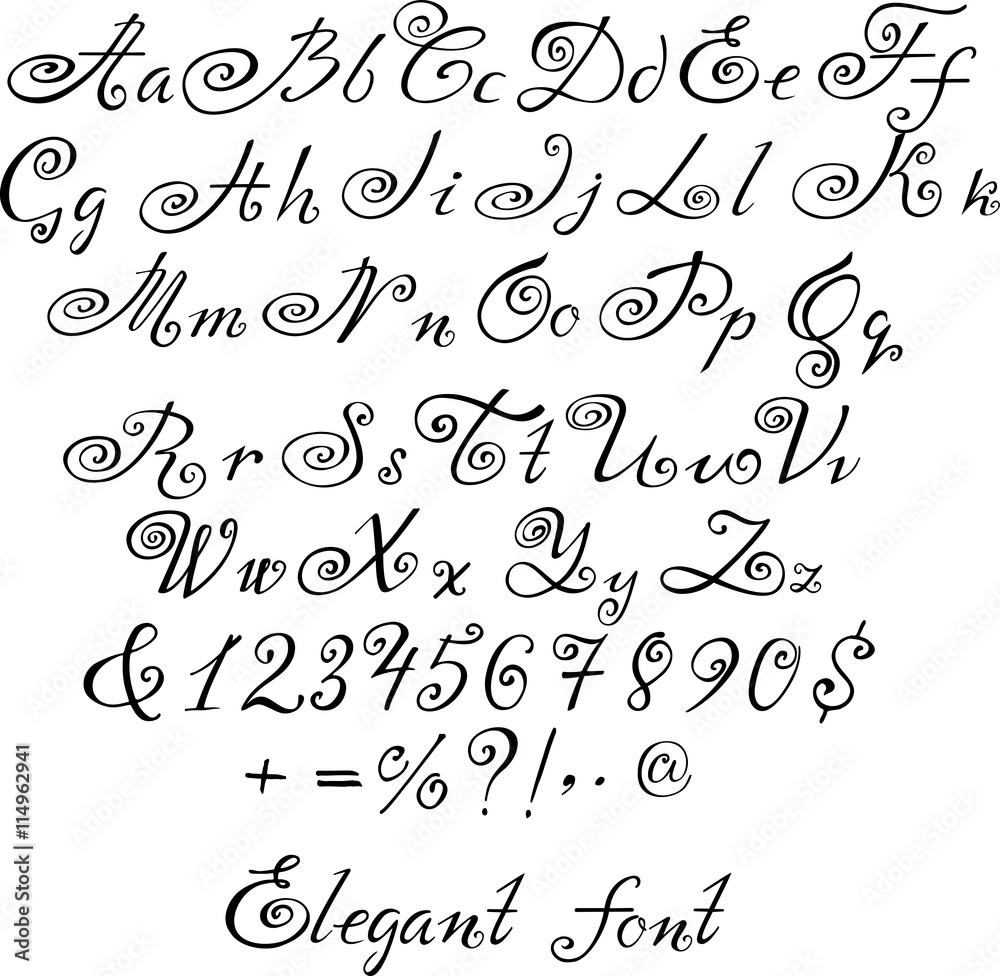 Aa Bb Cc Dd Ee Ff
Gg Hh Ii Jj Ll Kk
Mm Nn Oo Pp Qq
Rr Ss Tt Uu Vv
Ww Xx Yy Zz
& 1 2 3 4 5 6 7 8 9 0 $
+ = % ? ! , . . @
Elegant font
Adobe Stock | #114962941